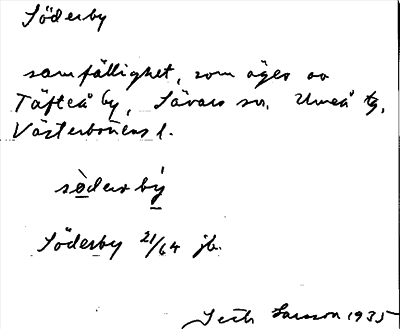 Söderby
samfällighet, som äges av
Täfteå by, Sävars sn, Umeå tg,
Västerbottens l.
sö̀der bý
Söderby 21/64 jb.
Larsson 1935